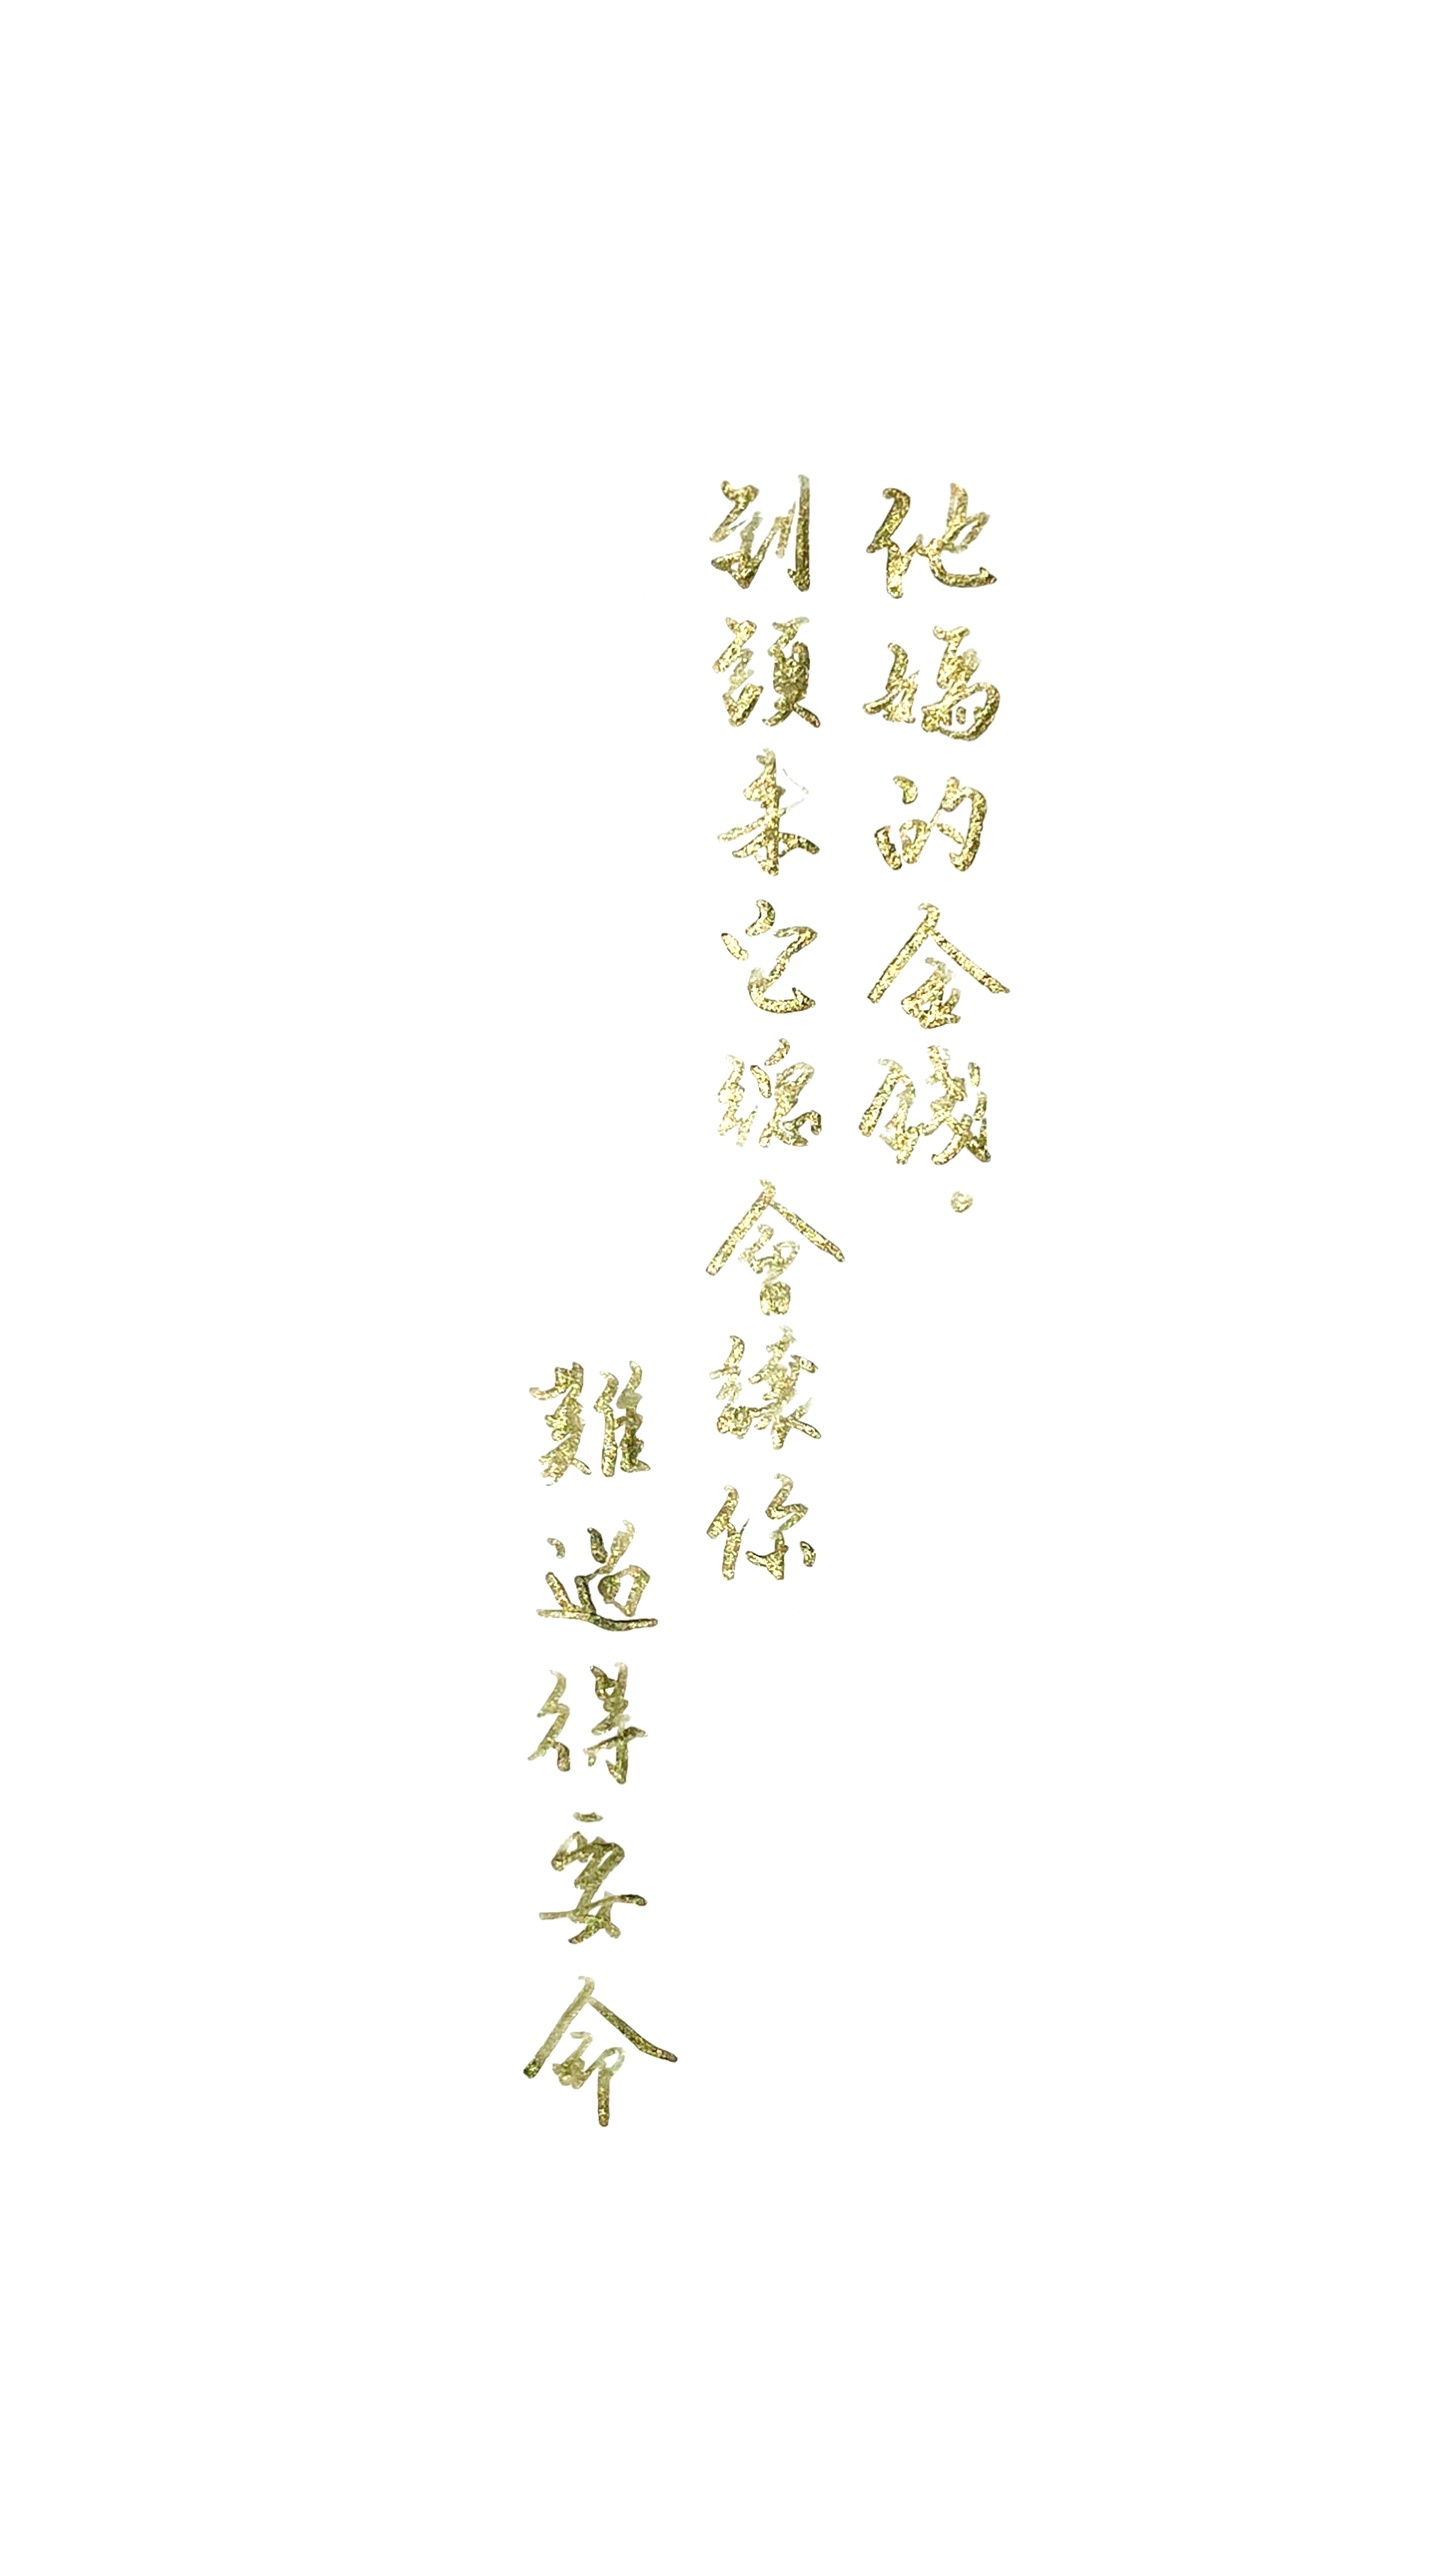 他媽的金錢。
到頭來它總會讓你
難過得要命